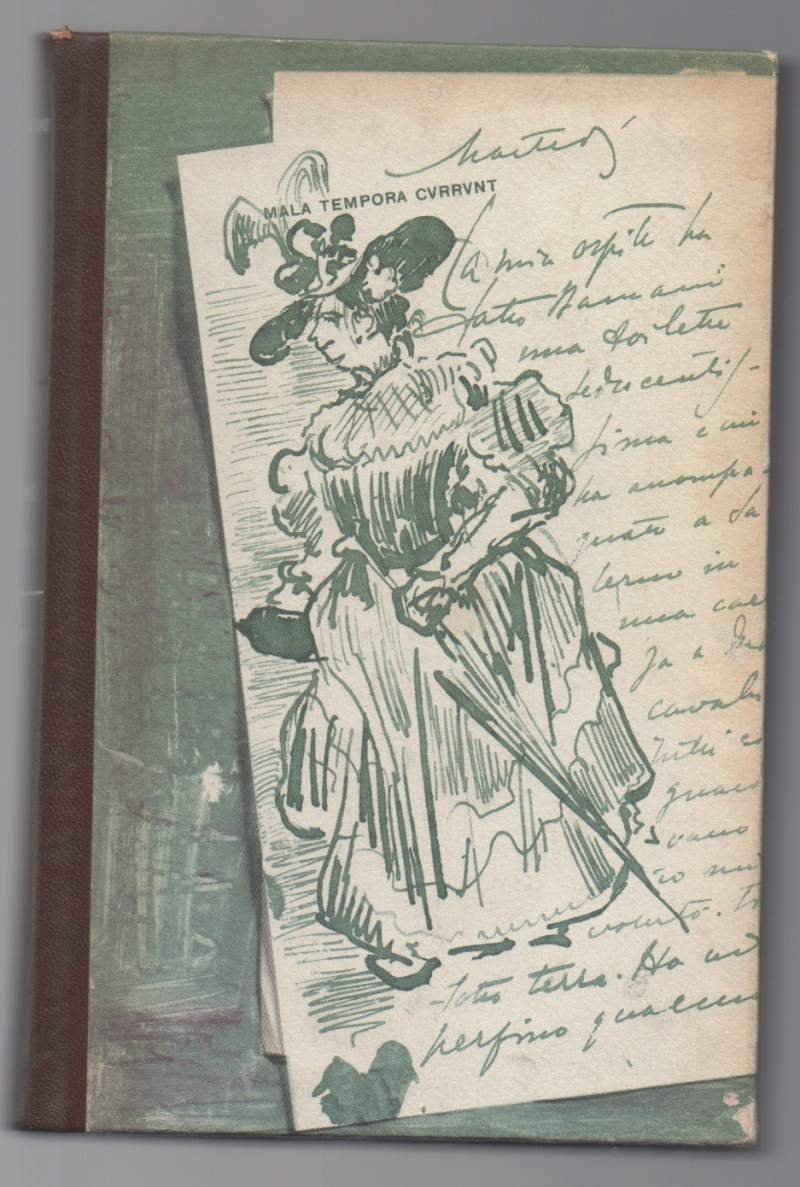 Martedì
MALA TEMPORA CVRRVNT
La mia ospite ha
fatto stamani
una toilette
seducentis-
sima e mi
ha accompa-
gnato a Sa
lerno in
una car
cavalli
Tutti
guar
vano
voluto.
sotto terra. Ha
perfino qualcun